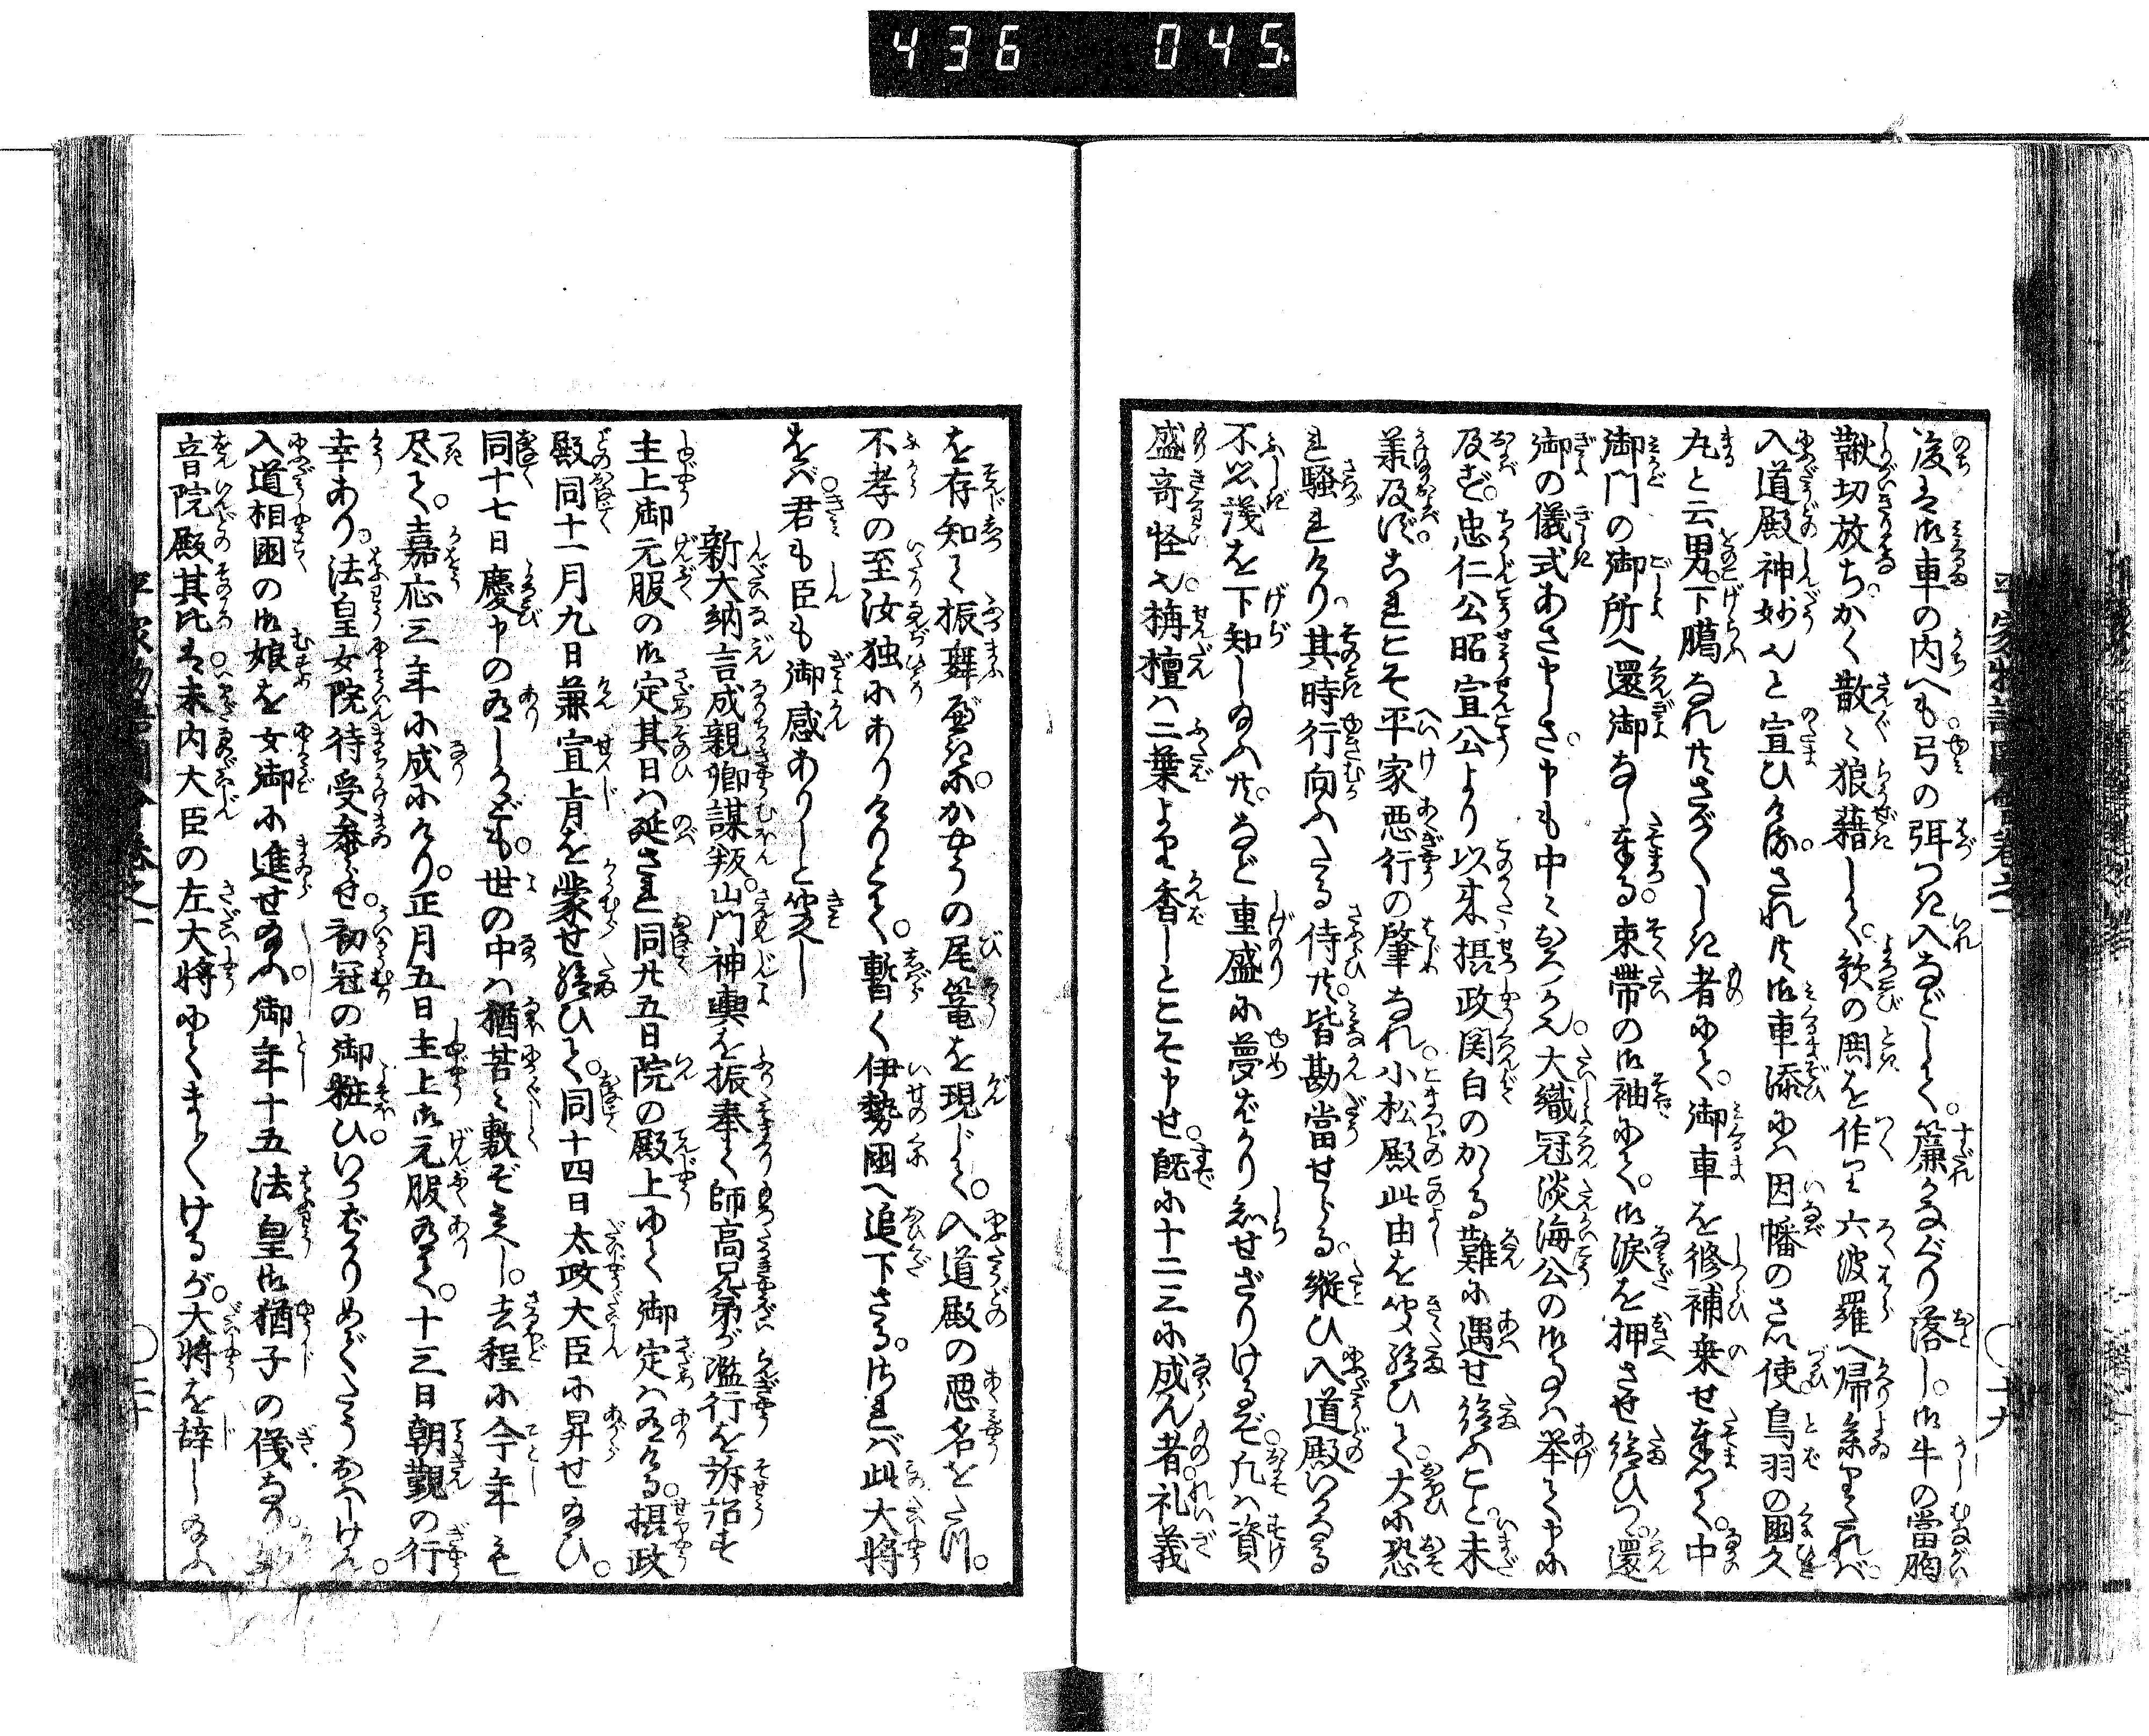 436 045
後は御車の内へも弓の弭つき入などして。簾かなぐり落し。御牛の當胸
鞦切放ち。かく散〻狼藉して。歓の鬨を作り六波羅へ帰参りたれば。
入道殿神妙也と宣ひける。され共御車添には因幡のさい使。鳥羽の國久
丸と云男。下臈なれ共さが〱しき者にて。御車を修補乗せ奉りて。中
御門の御所へ還御なし奉る。束帯の御袖にて。御涙を押させ給ひつ。還
御の儀式あさましさ。申も中〻おろかなり。大織冠淡海公の御事は挙て申に
及ばず。忠仁公昭宣公より以来摂政関白のかゝる難に遇せ給ふこと。未
承及ばず。これこそ平家悪行の肇なれ。小松殿此由を聞給ひて。大に恐
れ騒れけり。其時行向ふたる侍共。皆勘當せらる。縦ひ入道殿いかなる
不思議を下知し給ふ共。など重盛に夢ばかり知せざりけるぞ。凡は資
盛奇怪也。栴檀は二葉より香しとこそ申せ。既に十二三に成ん者。礼義
を存知て振舞べきに。かやうの尾篭を現じて。入道殿の悪名をたつ。
不孝の至汝独にありけりとて。暫く伊勢國へ追下さる。されば此大將
をば君も臣も御感ありしと聞えし
新大納言成親卿謀叛。山門神輿を振奉て師高兄弟が濫行を訴詔す
主上御元服の御定其日は延され同廿五日院の殿上にて御定は有ける。摂政
殿同十一月九日兼宣旨を蒙せ給ひて。同十四日太政大臣に昇せ給ひ。
同十七日慶申の有しかども。世の中は猶苦〻敷ぞ見えし。去程に今年も
尽て。嘉応三年に成にけり。正月五日主上御元服有て。十三日朝覲の行
幸あり。法皇女院待受参らせ。初冠の御粧ひいかばかりめでたうおぼしけん。
入道相國の御娘を女御に進せ給ふ。御年十五法皇御猶子の儀なり。
音院殿其比は未内大臣の左大將にてましましけるが。大將を辞し給ふ